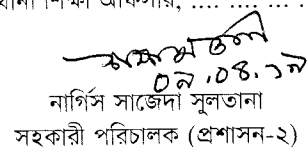 শিক্ষা অফিসার, ... ... ... .
০৯.০৪.১৯
নার্গিস সাজেদা সুলতানা
সহকারী পরিচালক (প্রশাসন-২)